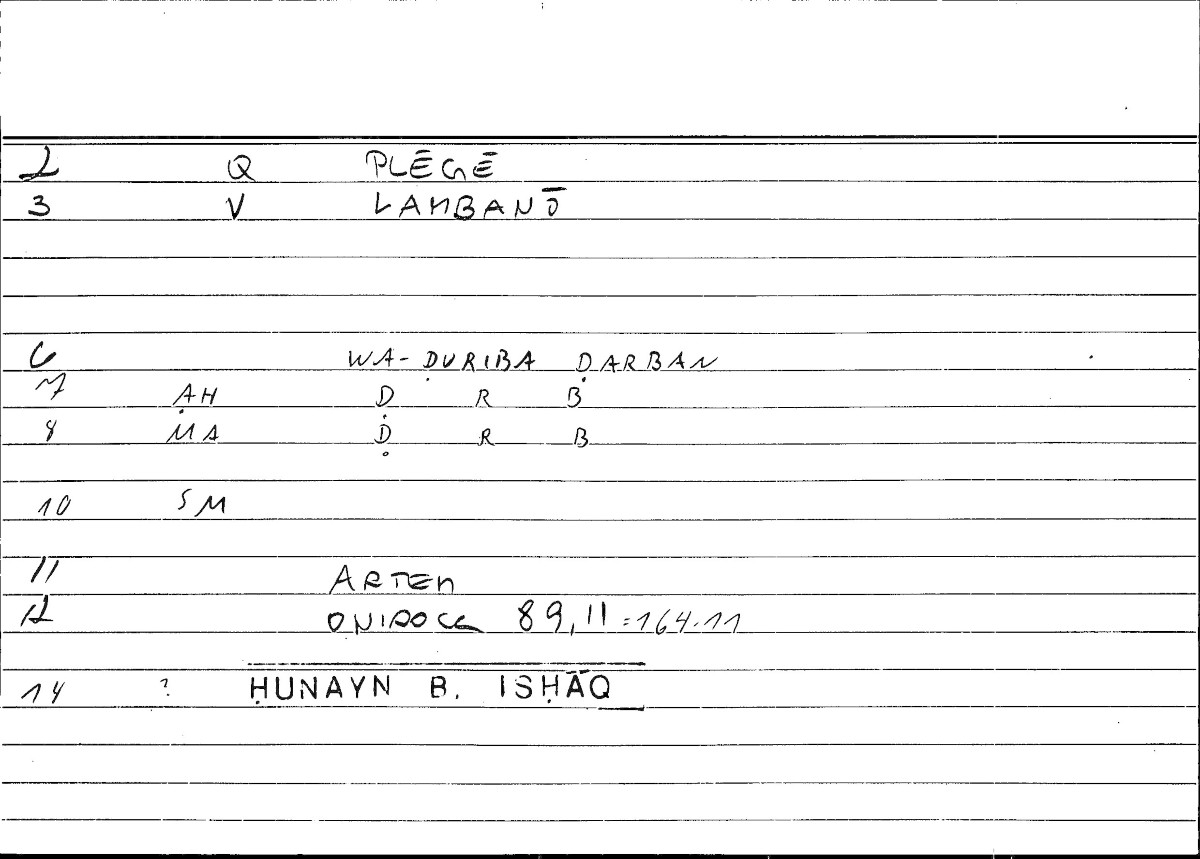 2 Q PLĒGĒ
3 V LAMBANŌ
6 WA-ḌURIBA ḌARBAN
7 ẠH Ḍ R B
8 MA Ḍ R B
10 SM
11 ARTEM
12 ONIROCR 89,11 = 164.11
14 ? ḤUNAYN B. ISḤĀQ